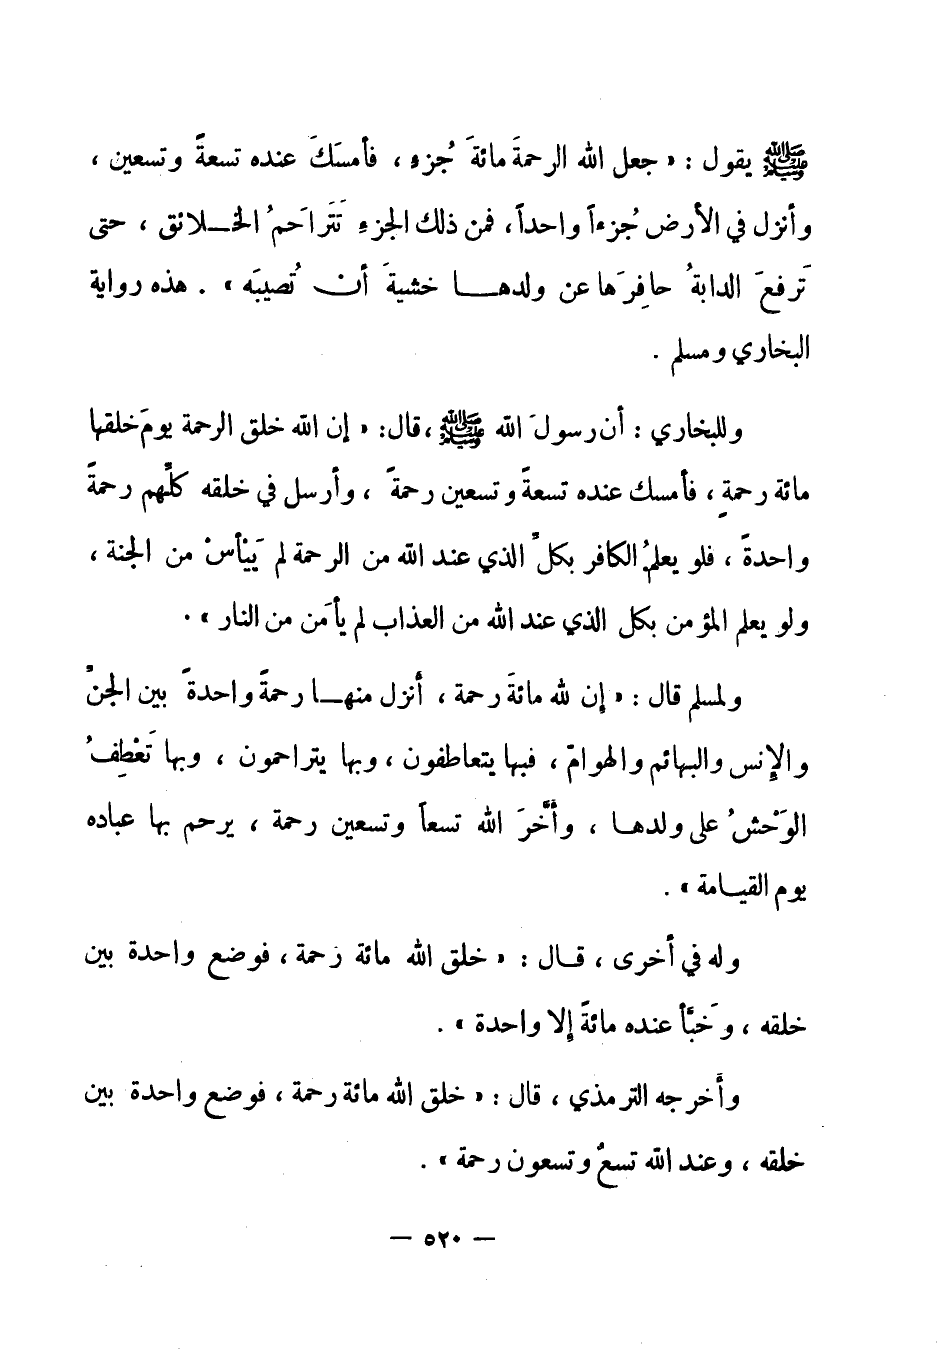 ﷺ يقول : « جعل الله الرحمةَ مائةَ جُزءٍ ، فأمسَكَ عنده تسعةً وتسعين ،
وأنزل في الأرض جُزءاً واحداً، فمن ذلك الجزءِ تَتَراحَمُ الخـــلائق ، حتى
تَرفعَ الدابةُ حافِرَها عن ولدهـــا خشيةَ أنـــ تُصيبَه » . هذه رواية
البخاري ومسلم .
وللبخاري : أن رسولَ الله ﷺ ،قال: « إن الله خلق الرحمة يومَ خلقها
مائة رحمةٍ ، فأمسك عنده تسعةً وتسعين رحمةً ، وأرسل في خلقه كلِّهم رحمةً
واحدةً ، فلو يعلمُ الكافر بكلِّ الذي عند الله من الرحمة لم يَيْأسْ من الجنة ،
ولو يعلم المؤمن بكل الذي عند الله من العذاب لم يأمَن من النار » .
ولمسلم قال : « إن لله مائةَ رحمة ، أنزل منهـــا رحمةً واحدةً بين الجنِّ
والإنس والبهائم والهوامّ ، فبها يتعاطفون ، وبها يتراحمون ، وبها تَعْطِفُ
الوَحْشُ على ولدهـــا ، وأخَّرَ الله تسعاً وتسعين رحمة ، يرحم بها عباده
يوم القيـــامة » .
وله في أخرى ، قـــال : « خلق الله مائة رحمة ، فوضع واحدة بين
خلقه ، وخَبَّأ عنده مائةً إلا واحدة » .
وأخرجه الترمذي ، قال : « خلق الله مائة رحمة ، فوضع واحدة بين
خلقه ، وعند الله تسعٌ وتسعون رحمة » .
— ٥٢٠ —